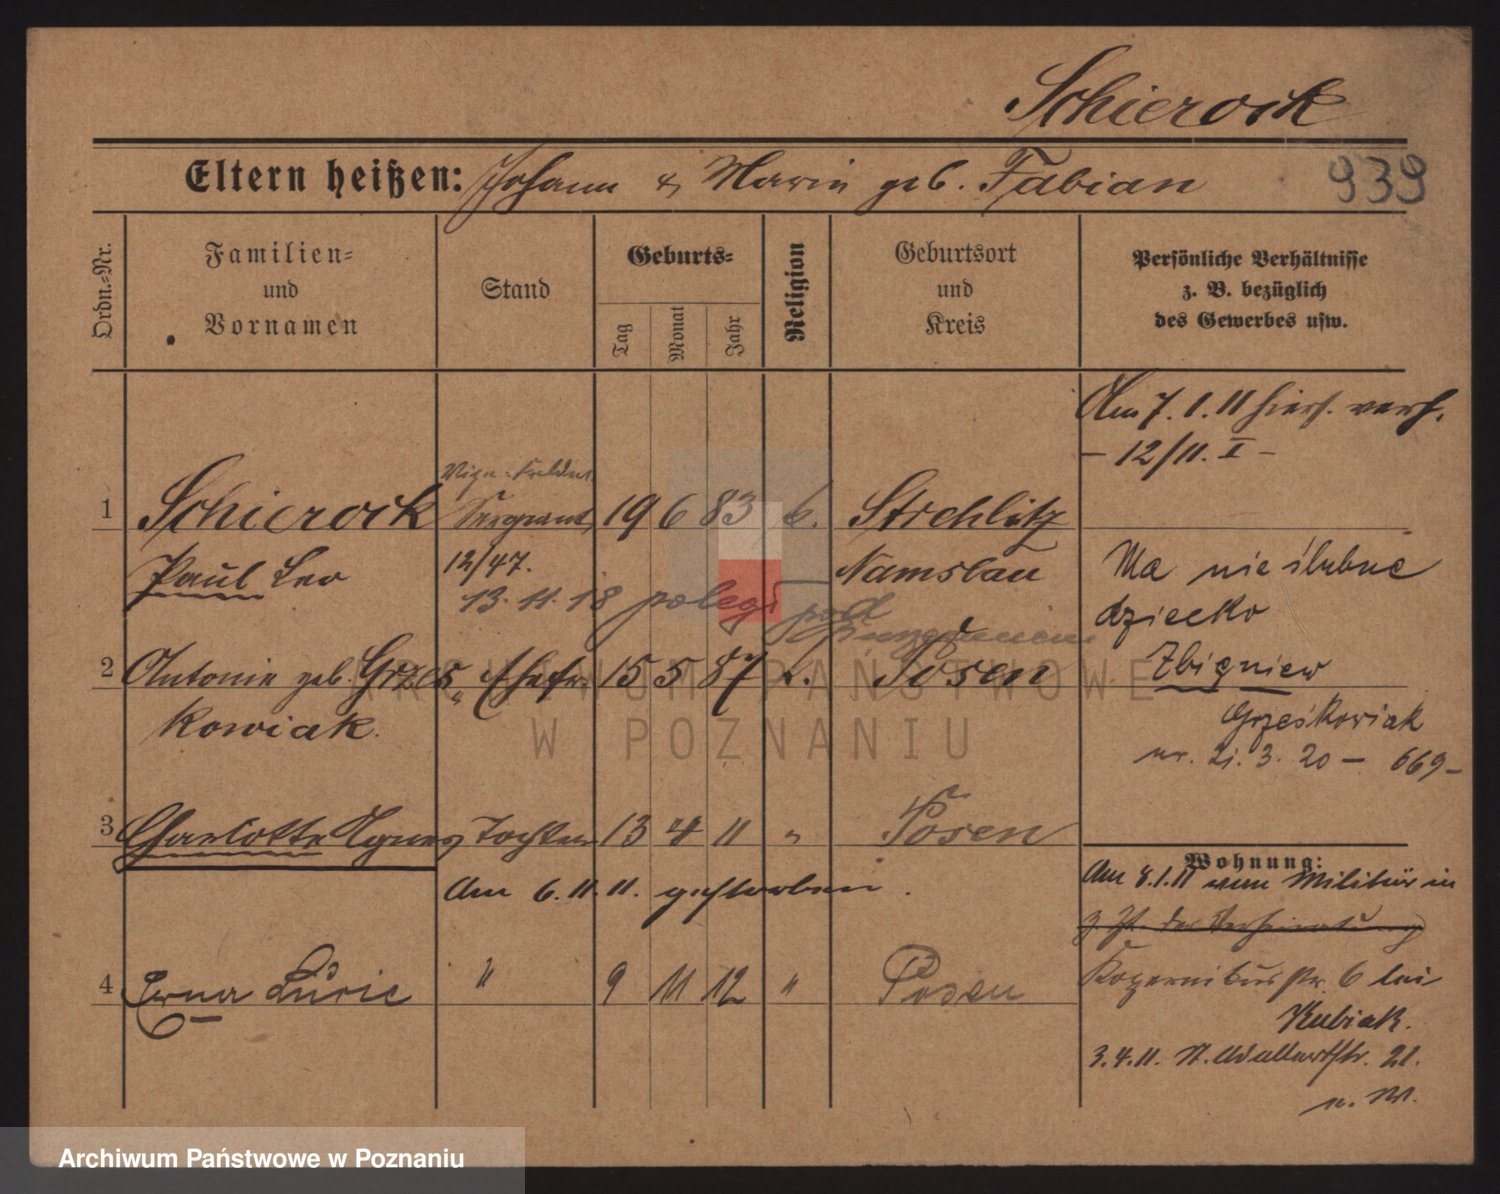 Schierock
Eltern heißen: Johann & Marie geb. Fabian
939
Ordn.-Nr.
Familien-
und
Vornamen
Stand
Geburts-
Tag
Monat
Jahr
Religion
Geburtsort
und
Kreis
Persönliche Verhältnisse
z. B. bezüglich
des Gewerbes usw.
Am 7.1.11 hiers. verh.
- 12/11. I -
1 Schierock Vize-Feldw. Sergeant 19 6 83 k. Strehlitz
Paul Leo 12/47. Namslau
13.11.18 poległ pod
2 Antonie geb. Grzes Ehefr. 15 5 87 k. Posen
kowiak.
Ma nie ślubne
dziecko
Zbigniew
Grześkowiak
ur. 21.3.20 - 669 -
3 Charlotte Agnes Tochter 13 4 11 " Posen
Am 6.11.11. gestorben.
4 Erna Lucie " 9 11 12 " Posen
Wohnung:
Am 8.1.11 vom Militär in
z. Zt. der Verheiratung
Kopernikusstr. 6 bei
Kubiak.
3.4.11. N. Adalbertstr. 21.
n. M.
ARCHIWUM PAŃSTWOWE
W POZNANIU
Archiwum Państwowe w Poznaniu